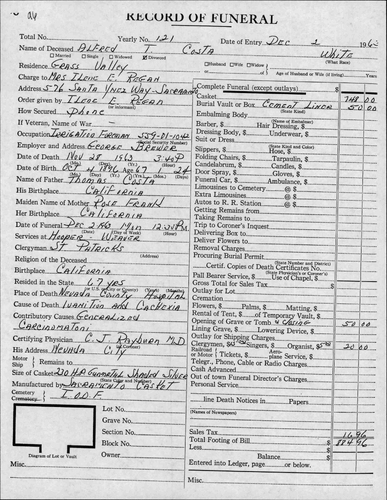 RECORD OF FUNERAL
Total No. Yearly No. 121 Date of Entry Dec 2 1963
Name of Deceased Alfred T. Costa White
(What Race)
Married Single Widowed Divorced Husband Widow Wife
Residence Grass Valley
Age of Husband or Wife (if living)
Charge to Mrs Ilene E. Regan
Address 576 Santa Ynez Way - Sacramento
Order given by Ilene E. Regan
How Secured Phone
If Veteran, Name of War
Occupation Irrigation Foreman 559-01-1042
(Social Security Number)
Employer and Address George Brewer
Date of Death Nov 28 1963 3:40 P
Date of Birth Oct 4 1896 Age 67 1 24
Name of Father Thomas Costa
His Birthplace California
Maiden Name of Mother Rose Frank
Her Birthplace California
Date of Funeral Dec 2
Services at Hooper & Weaver
Clergyman St Patricks
(Address)
Religion of the Deceased
Birthplace California
Resided in the State 67 yrs
Place of Death Nevada County Hospital
Cause of Death Inanition and Cachexia
Contributory Causes Generalized
Carcinomatosi
Certifying Physician C. J. Rayburn M.D.
His Address Nevada City
Motor Ship Remains to
Size of Casket
(State Color and Number)
Manufactured by Sacramento Casket
Cemetery Crematory I.O.O.F.
Lot No.
Grave No.
Section No.
Block No.
Owner
Diagram of Lot or Vault
Misc.
Complete Funeral (except outlays) $
Casket 748 00
Burial Vault or Box Cement Liner 50 00
(State Kind)
Embalming Body
(Name of Embalmer)
Barber, $ Hair Dressing, $
Dressing Body, $ Underwear, $
Suit or Dress
(State Kind and Color)
Slippers, $ Hose, $
Folding Chairs, $ Tarpaulin, $
Candelabrum, $ Candles, $
Door Spray, $ Gloves, $
Funeral Car, $ Ambulance, $
Limousines to Cemetery @ $
Extra Limousines @ $
Autos to R. R. Station @ $
Getting Remains from
Taking Remains to
Trip to Coroner's Inquest
Delivering Box to
Deliver Flowers to
Removal Charges
Procuring Burial Permit
(State District and Number)
Certif. Copies of Death Certificates No.
(State Number and to whom Delivered)
Pall Bearer Service, $ Use of Chapel, $
Gross Total for Sales Tax $
Outlay for Lot
Cremation
Flowers, $ Palms, $ Matting, $
Rental of Tent, $ of Temporary Vault, $
Opening of Grave or Tomb 50 00
Lining Grave, $ Lowering Device, $
Outlay for Shipping Charges
Clergymen, $ Singers, $ Organist, $ 20 00
Railroad or Motor Tickets, $ Aeroplane Service, $
Telegr., Phone, Cable or Radio Charges
Cash Advanced
Out of town Funeral Director's Charge
Personal Service
line Death Notices in Papers
(Names of Newspapers)
Sales Tax 16 96
Total Footing of Bill $ 884 96
Less $
Balance $
Entered into Ledger, page or below.
Misc.